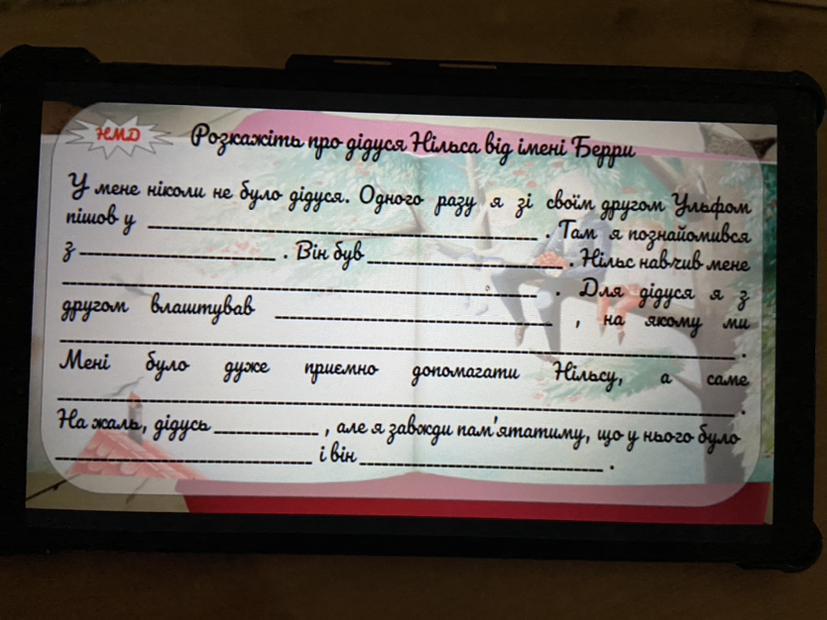 НМД
Розкажіть про дідуся Нільса від імені Берри
У мене ніколи не було дідуся. Одного разу я зі своїм другом Ульфом
пішов у ____________________. Там я познайомився
з ____________. Він був ____________. Нільс навчив мене
____________________________. Для дідуся я з
другом влаштував ________________, на якому ми
________________________________________.
Мені було дуже приємно допомагати Нільсу, а саме
________________________________________.
На жаль, дідусь ________, але я завжди пам'ятатиму, що у нього було
________________ і він ________________.